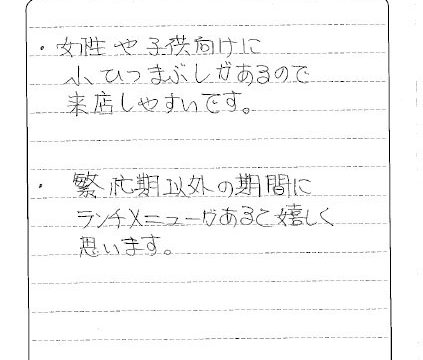 ・女性や子供向けに
小ひつまぶしがあるので
来店しやすいです。
・繁忙期以外の期間に
ランチメニューがあると嬉しく
思います。